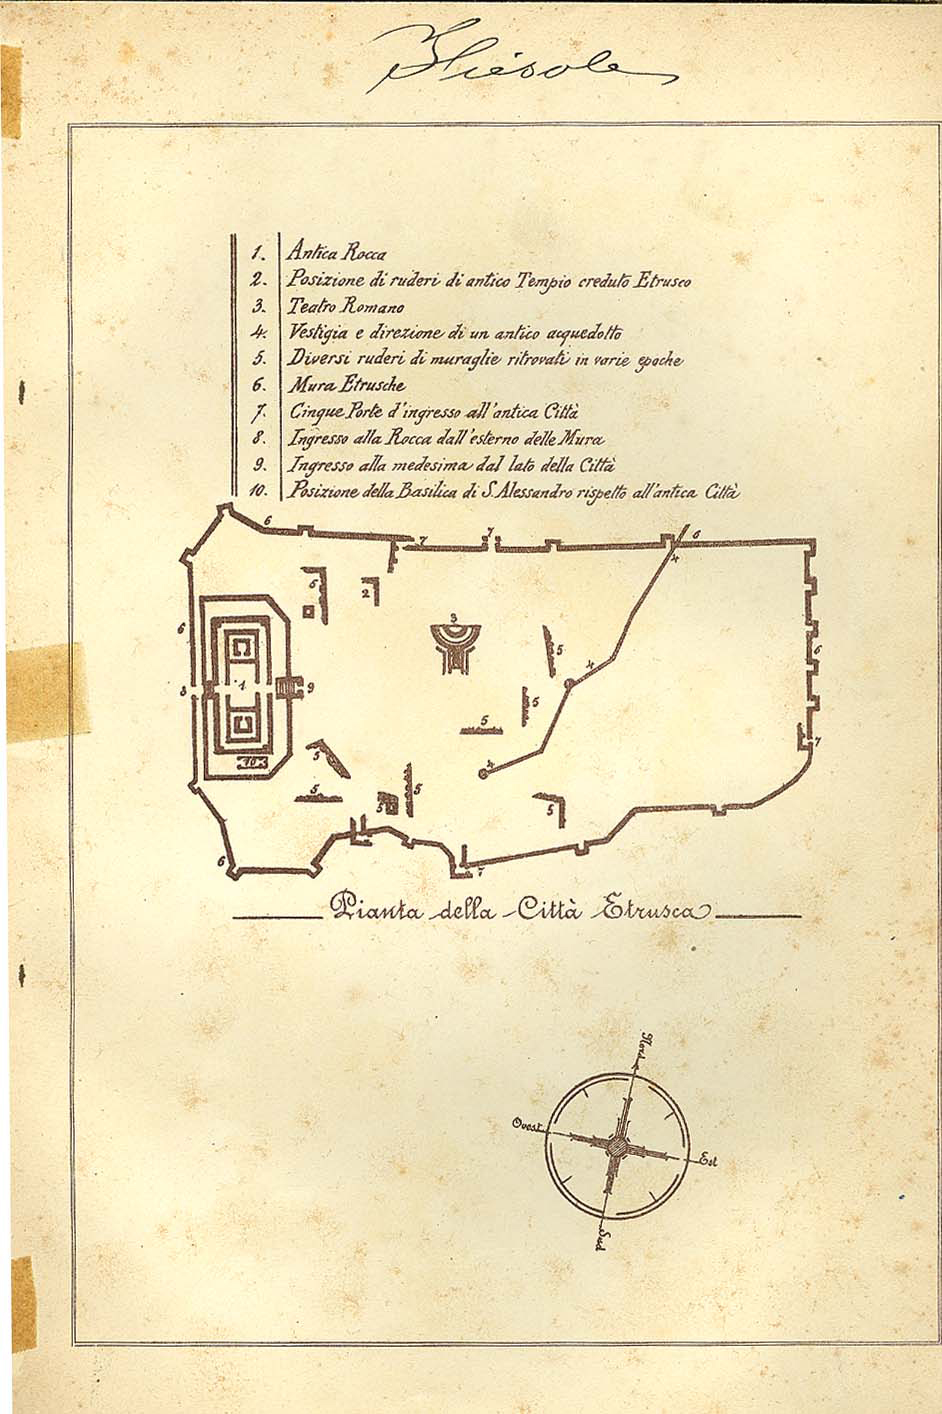 Fiesole
1. Antica Rocca
2. Posizione di ruderi di antico Tempio creduto Etrusco
3. Teatro Romano
4. Vestigia e direzione di un antico acquedotto
5. Diversi ruderi di muraglie ritrovati in varie epoche
6. Mura Etrusche
7. Cinque Porte d'ingresso all'antica Città
8. Ingresso alla Rocca dall'esterno delle Mura
9. Ingresso alla medesima dal lato della Città
10. Posizione della Basilica di S. Alessandro rispetto all'antica Città
6
7
7
6
4
5
2
3
6
5
4
6
8
1
9
5
5
7
10
5
4
5
5
5
5
6
7
Pianta della Città Etrusca
Nord
Ovest
Est
Sud